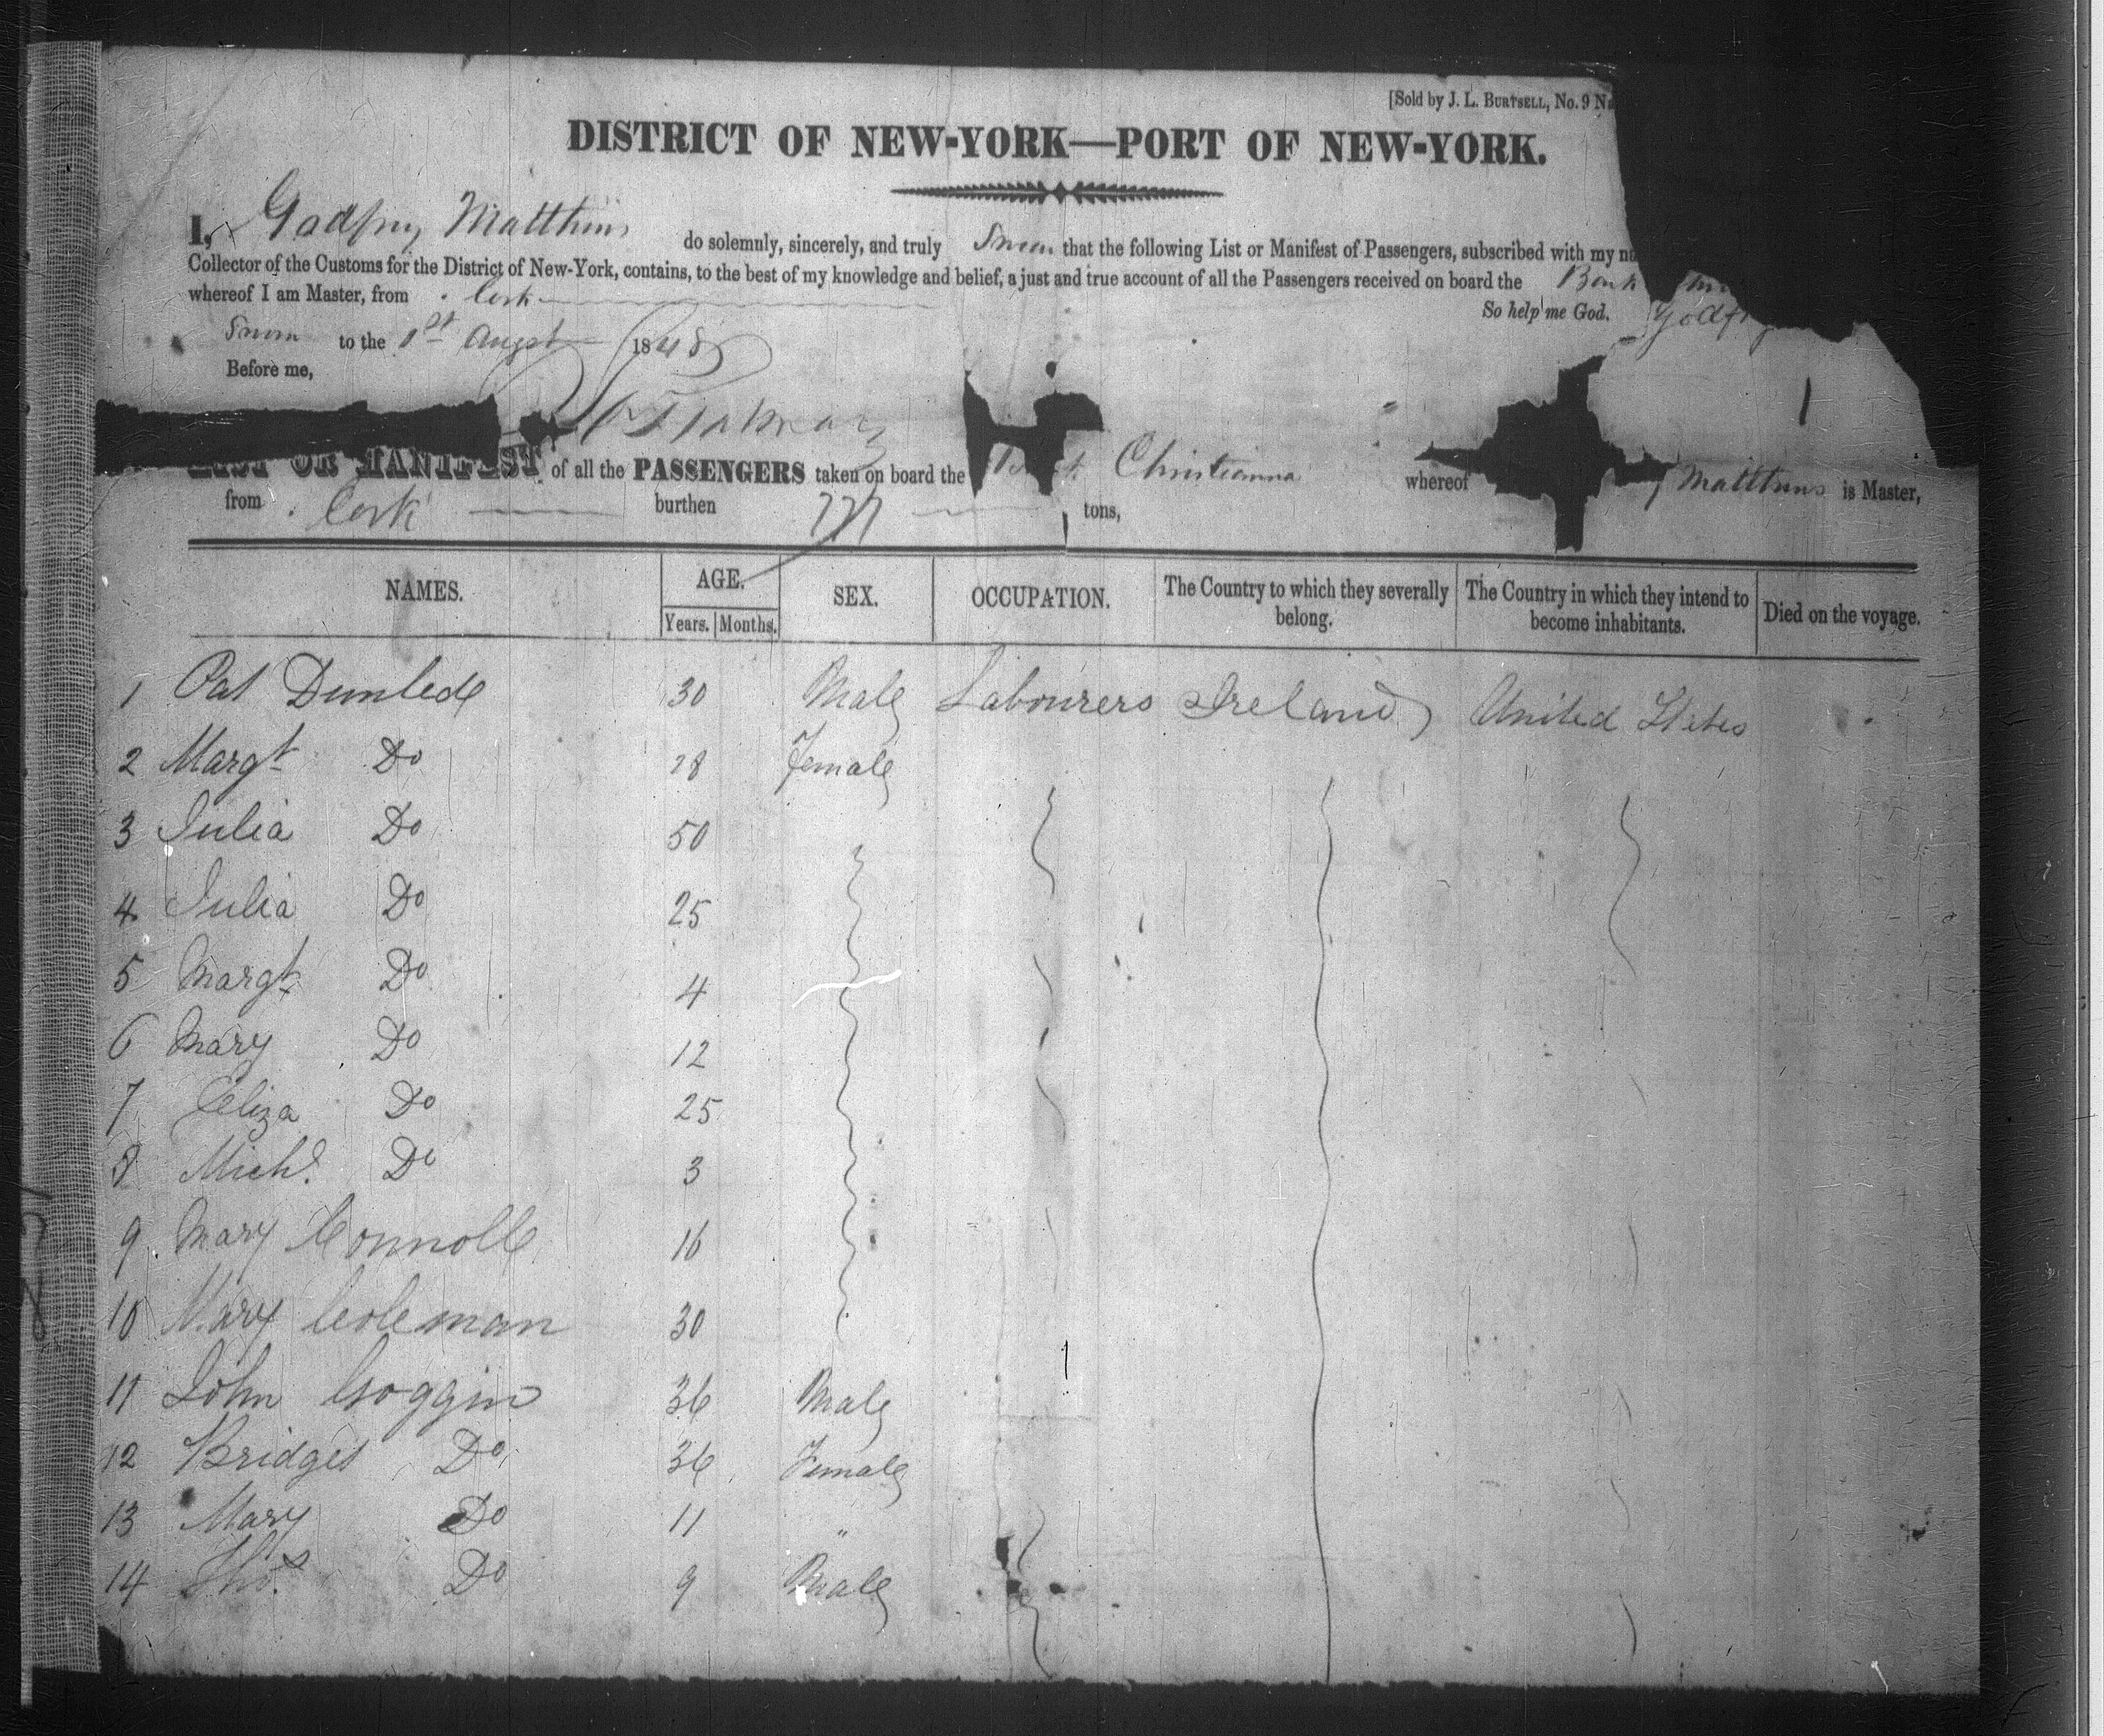 [Sold by J. L. BURTSELL, No. 9 N
DISTRICT OF NEW-YORK—PORT OF NEW-YORK.
I, Godfrey Matthews do solemnly, sincerely, and truly Swear that the following List or Manifest of Passengers, subscribed with my
Collector of the Customs for the District of New-York, contains, to the best of my knowledge and belief, a just and true account of all the Passengers received on board the Bark
whereof I am Master, from Cork
So help me God. Godf
Sworn to the 1st Augst 1848
Before me,
LIST OR MANIFEST of all the PASSENGERS taken on board the Christianna whereof Matthews is Master,
from Cork burthen tons,
NAMES. AGE. SEX. OCCUPATION. The Country to which they severally belong. The Country in which they intend to become inhabitants. Died on the voyage.
Years. Months.
1 Pat Dunlede 30 Male Labourers Ireland United States
2 Margt Do 28 Female
3 Julia Do 50
4 Julia Do 25
5 Margt Do 4
6 Mary Do 12
7 Eliza Do 25
8 Michl. Do 3
9 Mary Connolle 16
10 Mary Coleman 30
11 John Goggin 36 Male
12 Bridget Do 36 Female
13 Mary Do 11 "
14 Thos. Do 9 Male